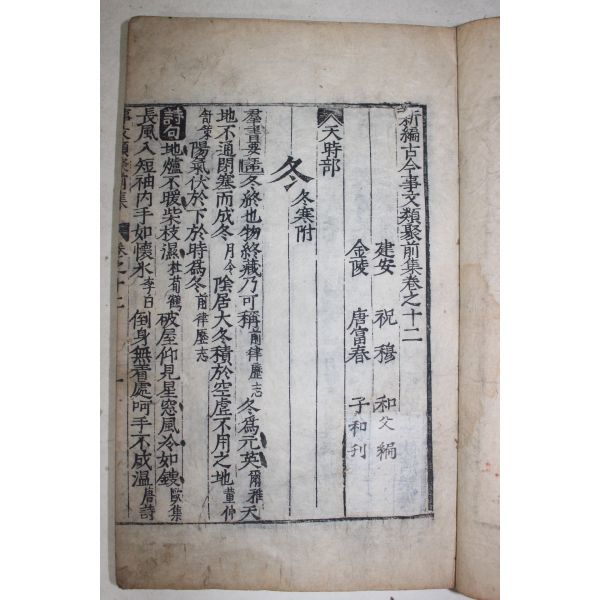 新編古今事文類聚前集卷之十二
建安 祝穆 和父 編
金陵 唐富春 子和 刊
天時部
冬 冬寒附
羣書要語 冬終也物終藏乃可稱 前律歷志 冬爲元英 爾雅 天
地不通閉塞而成冬 月令 陰居大冬積於空虛不用之地 董仲
舒策 陽氣伏於下於時爲冬 前律歷志
詩句 地爐不暖柴枝濕 杜荀鶴 破屋仰見星窓風冷如鎪 歐集
長風入短袖內手如懷氷 李白 倒身無着處呵手不成溫 唐詩
事文類聚前集 卷之十二 一